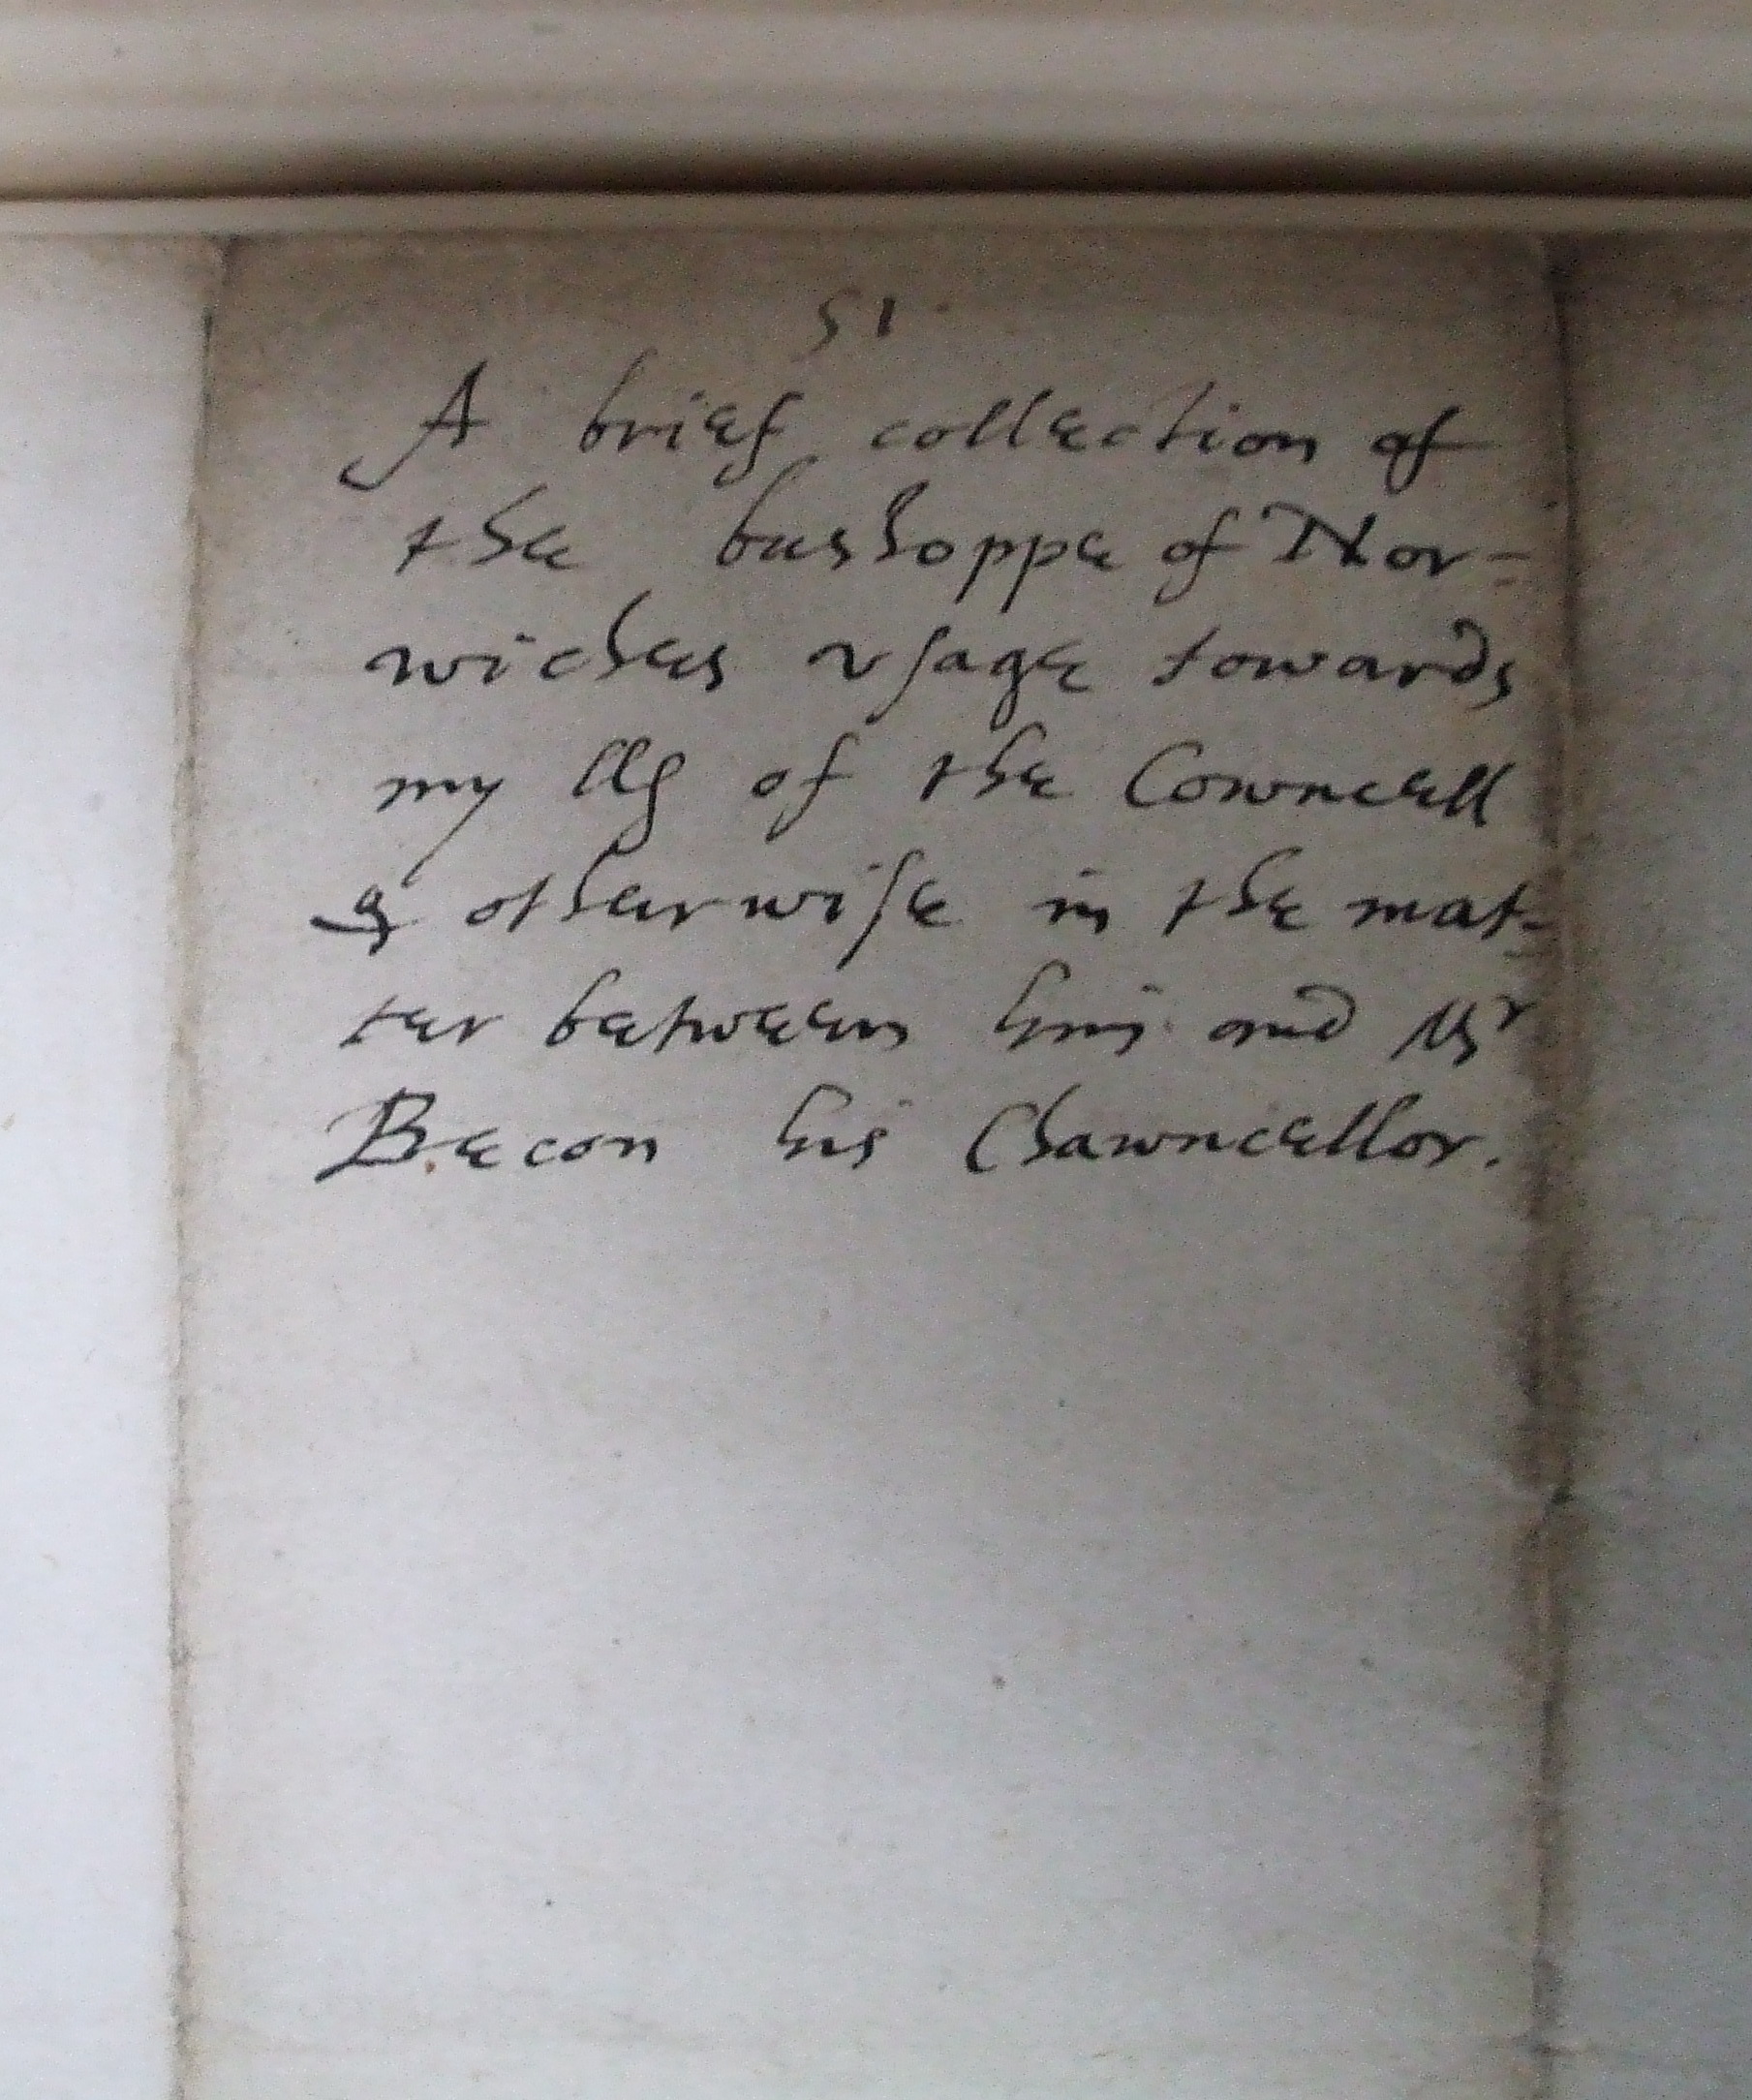 51.
A brief collection of
the busshoppe of Nor=
wiches vsage towards
my lls of the Cowncell
& otherwise in the mat=
ter between him and Mr
Becon his Chawncellor.